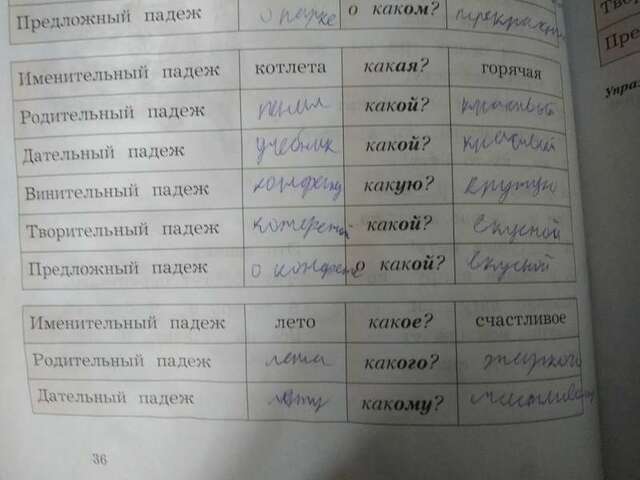 Предложный падеж о парке о каком? прекрасн
Именительный падеж котлета какая? горячая
Родительный падеж какой? красивый
Дательный падеж учебник какой? красивый
Винительный падеж конфету какую? крутую
Творительный падеж какой? вкусной
Предложный падеж о конфете о какой? вкусной
Именительный падеж лето какое? счастливое
Родительный падеж лета какого? жаркого
Дательный падеж лету какому?
36
Тво
Пре
Упра